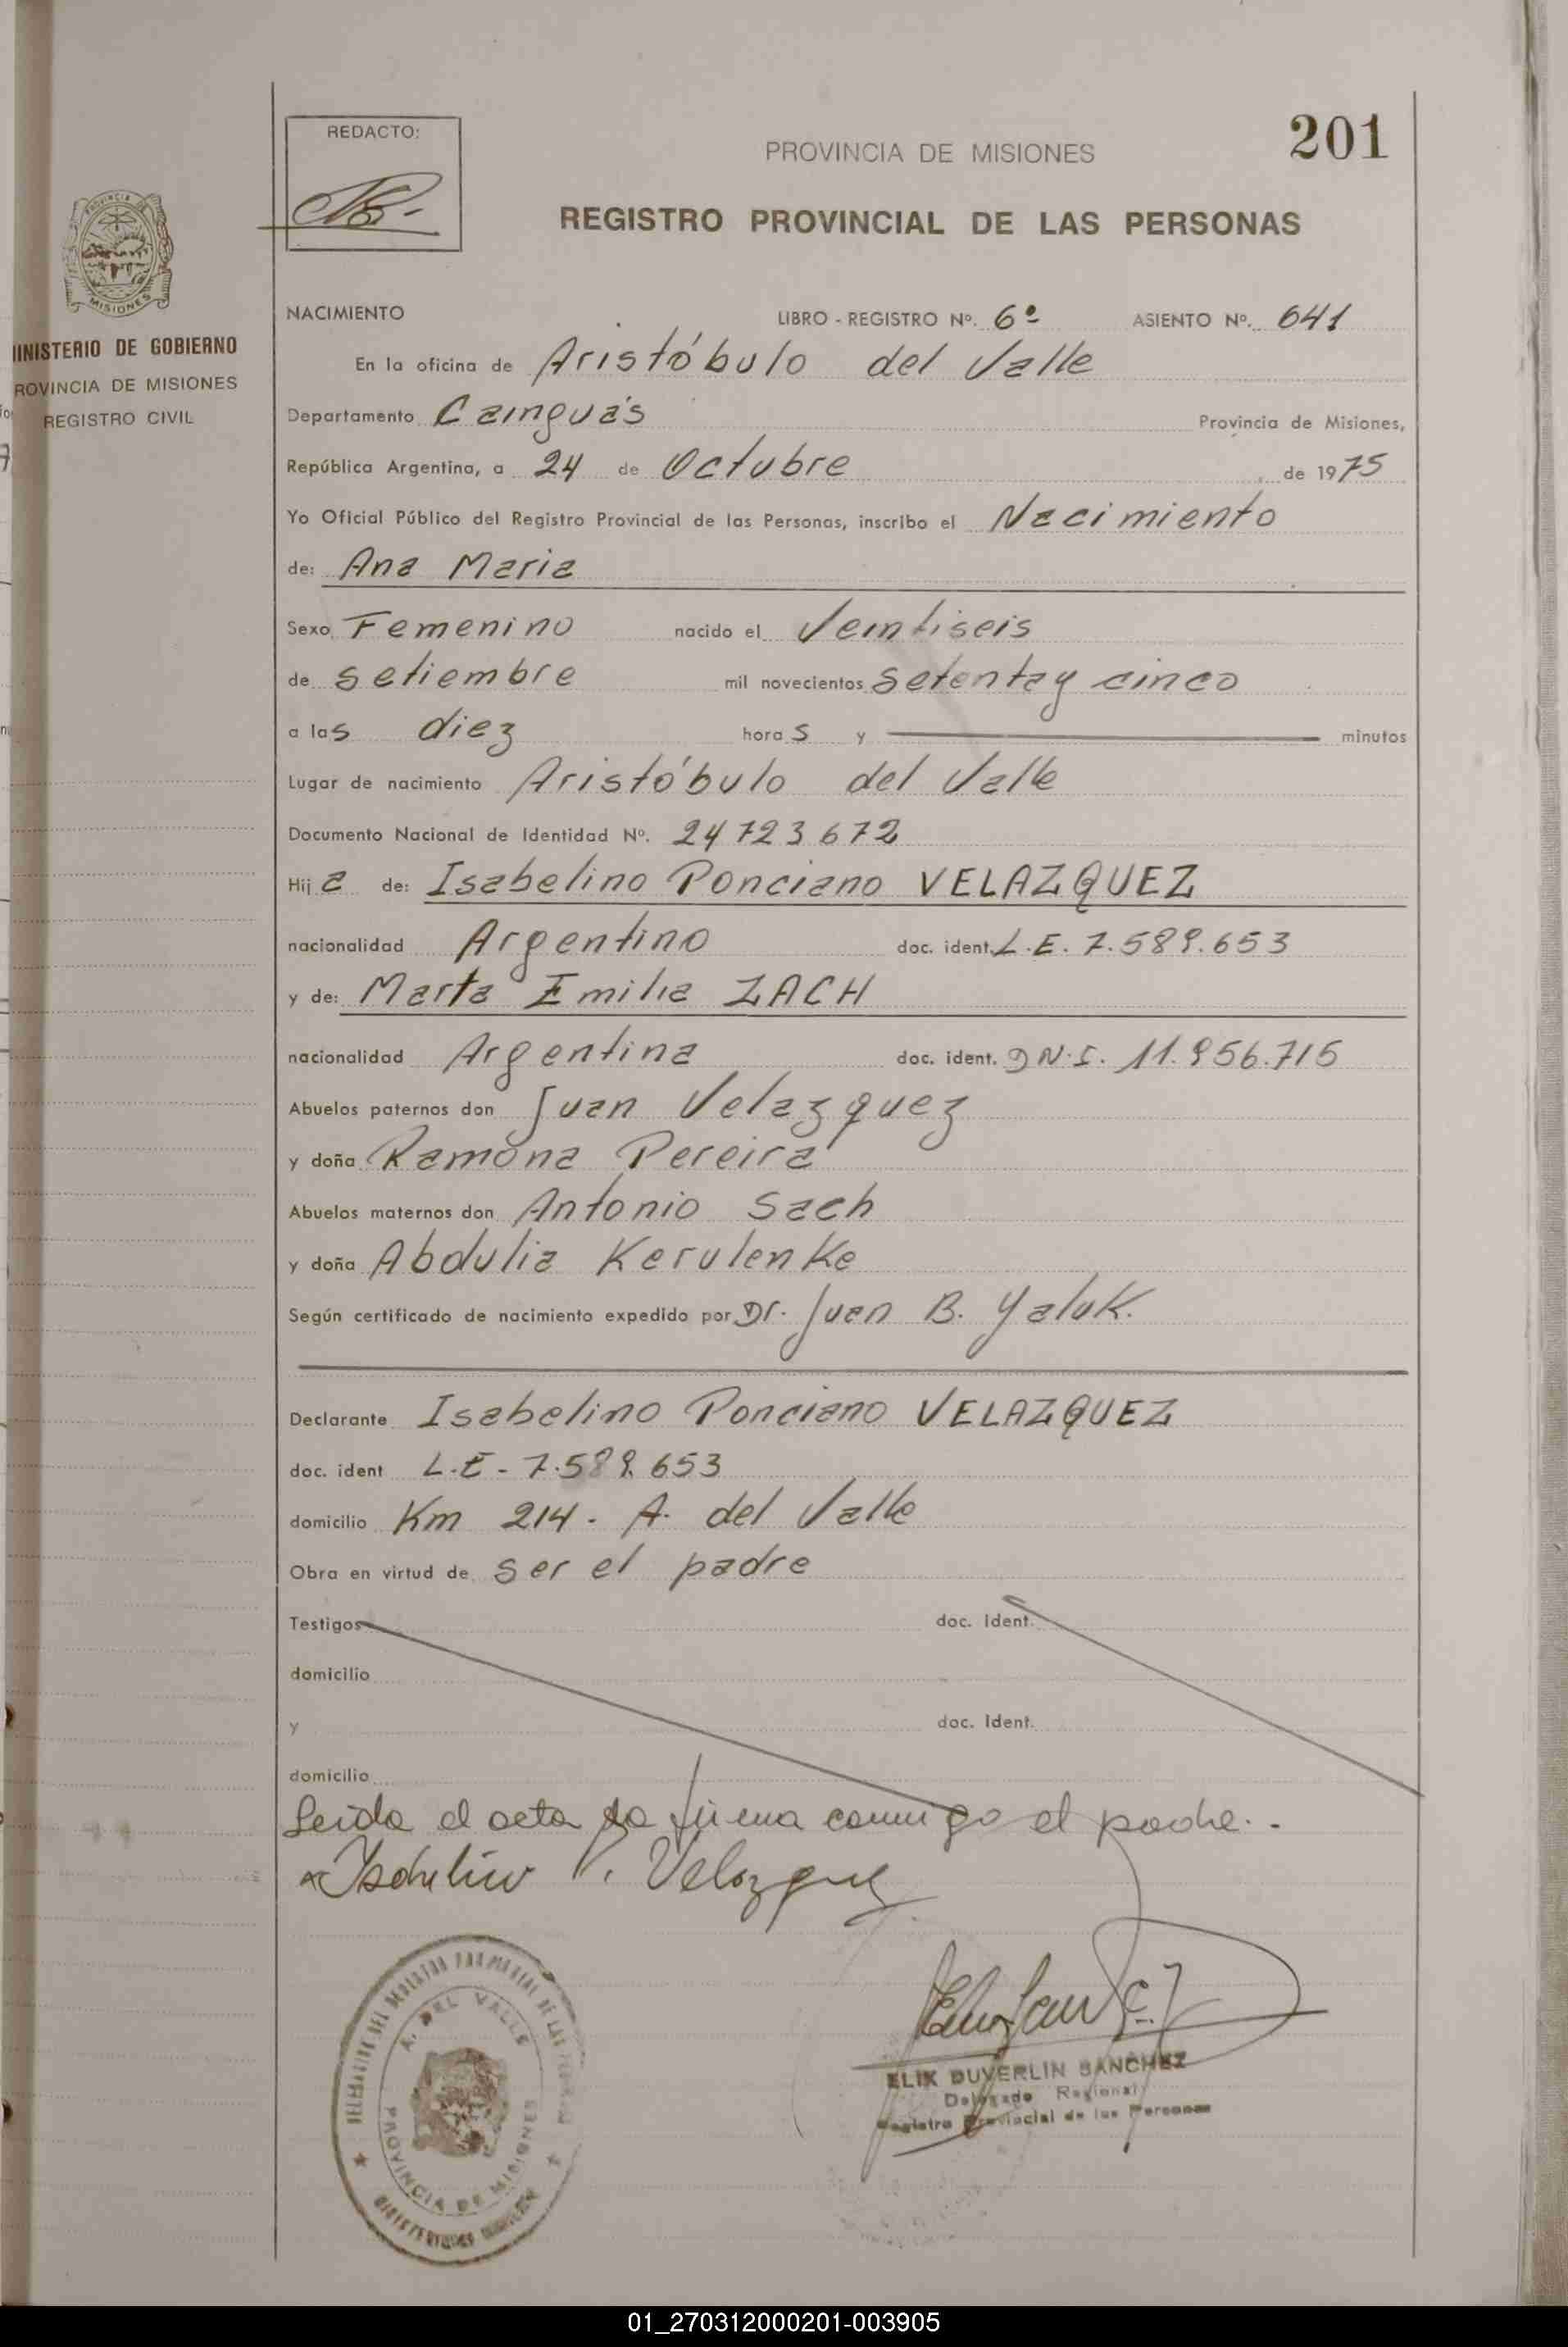 REDACTO:
201
PROVINCIA DE MISIONES
REGISTRO PROVINCIAL DE LAS PERSONAS
MISIONES
INISTERIO DE GOBIERNO
ROVINCIA DE MISIONES
REGISTRO CIVIL
NACIMIENTO LIBRO - REGISTRO Nº. 6º ASIENTO Nº. 641
En la oficina de Aristóbulo del Valle
Departamento Cainguás Provincia de Misiones,
República Argentina, a 24 de Octubre de 1975
Yo Oficial Público del Registro Provincial de las Personas, inscribo el Nacimiento
de: Ana Maria
Sexo Femenino nacido el Veintiseis
de setiembre mil novecientos setenta y cinco
a las diez horas y minutos
Lugar de nacimiento Aristóbulo del Valle
Documento Nacional de Identidad Nº. 24723672
Hija de: Isabelino Ponciano VELAZQUEZ
nacionalidad Argentino doc. ident. L.E. 7.589.653
y de: Marta Emilia ZACH
nacionalidad Argentina doc. ident. D.N.I. 11.956.715
Abuelos paternos don Juan Velazquez
y doña Ramona Pereira
Abuelos maternos don Antonio Sach
y doña Abdulia Kerulenke
Según certificado de nacimiento expedido por Dr. Juan B. Yaluk.
Declarante Isabelino Ponciano VELAZQUEZ
doc. ident L.E - 7.589.653
domicilio Km 214 - A. del Valle
Obra en virtud de ser el padre
Testigos doc. Ident.
domicilio
y doc. Ident.
domicilio
Leida el acta la firma conmigo el padre.-
Isabelino P. Velazquez
A. DEL VALLE
PROVINCIA DE MISIONES
ELIX DUVERLIN SANCHEZ
Delegado Regional
Registro Provincial de las Personas
01_270312000201-003905